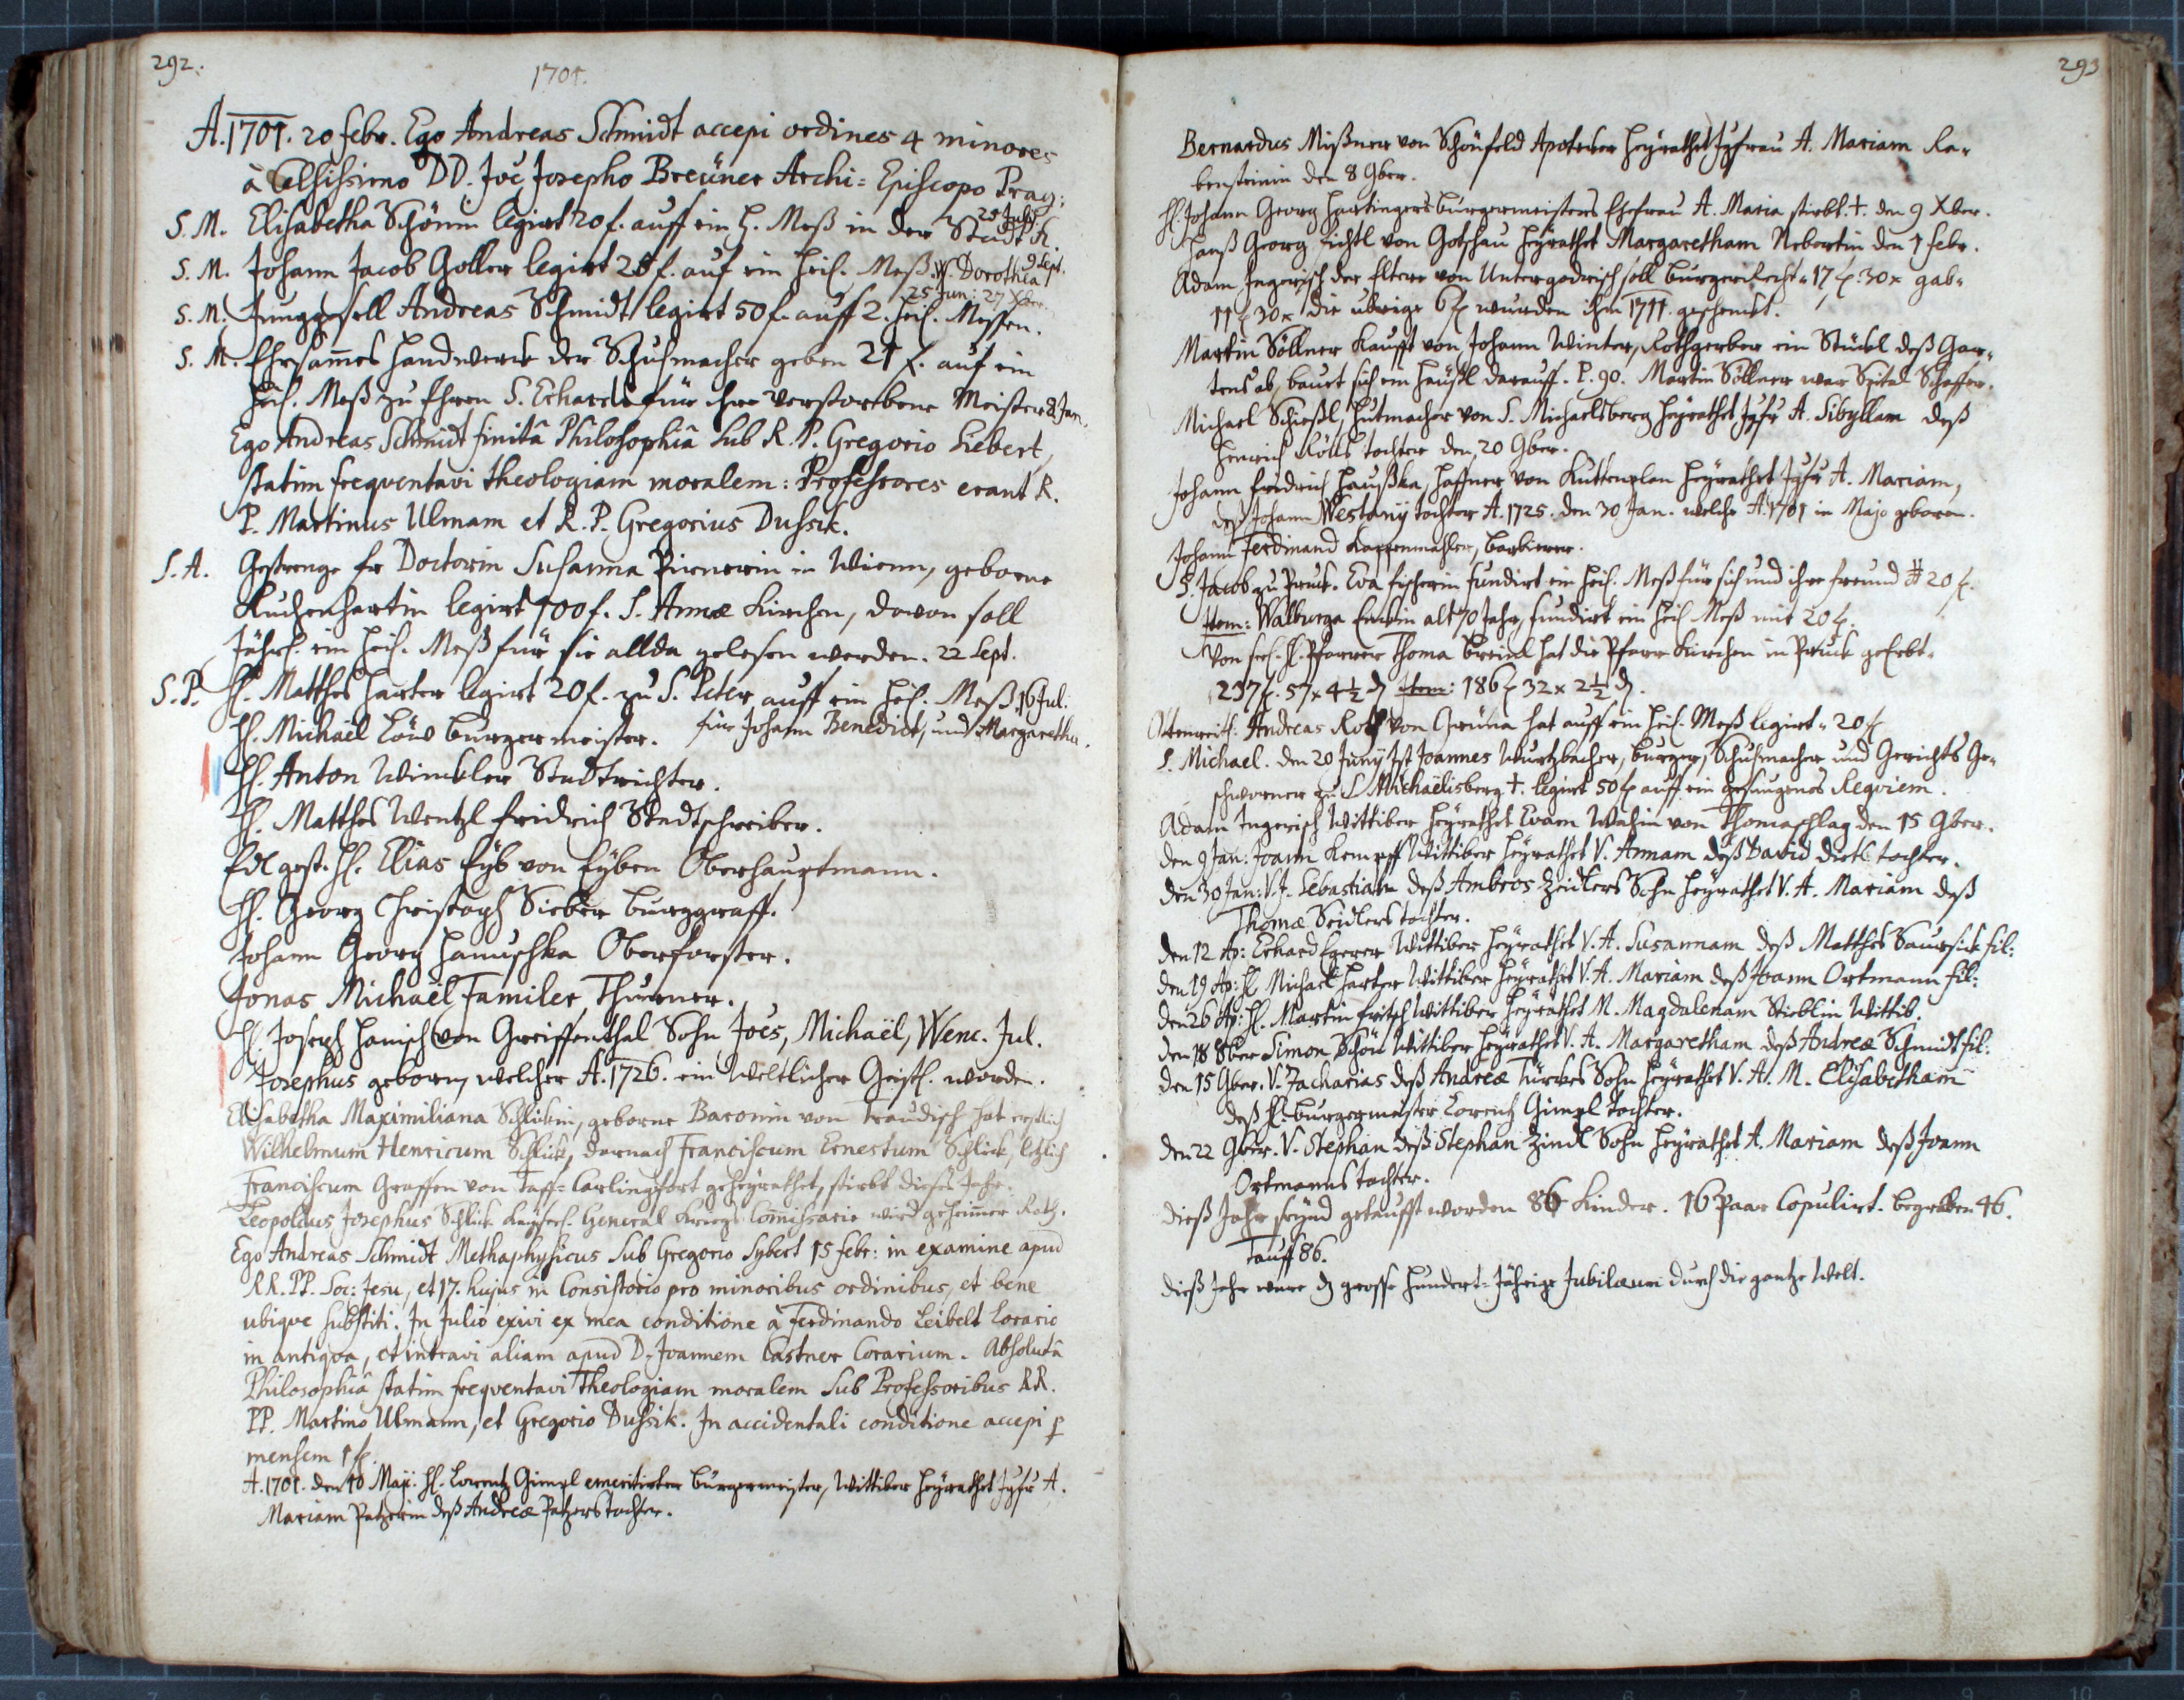 292.
1701.
A. 1701. 20 Febr. Ego Andreas Schmidt accepi ordines 4 minores
à Celsissimo DD. Joe Josepho Breüner Archi-Episcopo Prag:
25 July
S. M. Elisabetha Schönin legirt 20 f. auff ein H. Meß in der Stadt K.
9 Sept.
S. M. Johann Jacob Goller legirt 20 f. auf ein heil. Meß. Dorothea
25 Jun: 27 Xber
S. M. Junggesell Andreas Schmidt legirt 50 f. auff 2. heil. Messen.
S. M. Ehrsam̄es Handwerck der Schuhmacher geben 21 f. auf ein
heil. Meß zu Ehren S. Erhardi für ihre verstorbene Meister 8 Jan.
Ego Andreas Schmidt finitâ Philosophiâ sub R. P. Gregorio Siebert,
statim freqventavi theologiam moralem: Professores erant R.
P. Martinus Ulmam et R. P. Gregorius Dussik.
S. A. Gestrenge Fr Doctorin Susanna Pirnerin in Wienn, geborne
Kuchenhartin legirt 100 f. S. Annæ Kirchen, davon soll
Jährl. ein heil. Meß für sie allda gelesen werden. 22 Sept.
S. P. H. Matthes Harter legirt 20 f. zu S. Peter auff ein heil. Meß 16 Jul.
für Johann Benedict, und Margaretha.
H. Michaël Löw burgermeister.
H. Anton Winckler Stadtrichter.
H. Matthes Wentzl Fridrich Stadtschreiber.
Edl gest. H. Elias Eÿb von Eÿben Oberhauptmann.
H. Georg Christoph Sieber burggraff.
Johann Georg Hanuschka Oberforster.
Jonas Michaël Familer Thurner.
H. Joseph Hanisch von Greiffenthal Sohn Joes, Michaël, Wenc. Jul.
Josephus geborn, welcher A. 1726. ein Weltlicher Geistl. worden.
Elisabetha Maximiliana Schlickin, geborne Baronin von Traudisch hat erstlich
Wilhelmum Henricum Schlick, darnach Franciscum Ernestum Schlick, letzlich
Franciscum Graffen von Taff-Carlingfort geheyrathet, stirbt dieses Jahr.
Leopoldus Josephus Schlick Kaÿserl. General Kriegs Com̄issarie wird geheim̄er Rath.
Ego Andreas Schmidt Methaphysicus sub Gregorio Sybert 15 Febr: in examine apud
RR. PP. Soc: Jesu, et 17. hujus in Consistorio pro minoribus ordinibus, et bene
ubiqve substiti. In Julio exivi ex mea conditione à Ferdinando Leibelt Lorario
in antiqva, et intravi aliam apud D. Joannem Castner Corarium. Absolutâ
Philosophiâ statim freqventavi Theologiam moralem sub Professoribus RR.
PP. Martino Ulmann, et Gregorio Dussik. In accidentali conditione accepi p
mensem 1 f.
A. 1701. den 10 Maji: H. Lorentz Gimpl emeritirter Burgermeister, Wittiber heÿrathet Jgfr A.
Mariam Patzerin deß Andreæ Patzers tochter.
293
Bernardus Mißner von Schönfeld Apotecker heÿrathet Jgfrau A. Mariam Ra-
bensteinin den 8 9ber.
H. Johann Georg Hartingers burgermeisters Ehefrau A. Maria stirbt. †. den 9 Xber.
Hanß Georg Fichtl von Gotschau heÿrathet Margaretham Nebortin den 7 Febr.
Adam Ingerisch der Eltere von Untergodrisch soll burgerrecht 17 f. 30 x gab-
11 f 30 x die ubrige 6 f wurden ihm 1711. geschenckt.
Martin Söllner kaufft von Johann Winter, Rothgerber ein Stückl deß Gar-
tens ab, bauet sich ein häußl darauff. P. 90. Martin Söllner war Spital Schaffer.
Michael Schießl, Hutmacher von S. Michaelsberg heÿrathet Jgfr A. Sibyllam deß
Heinrich Rölls tochter den 20 9ber.
Johann Fridrich Haußka, Haffner von Kuttenplan heÿrathet Jgfr A. Mariam,
deß Johann Westanÿ tochter A. 1725. den 30 Jan. welche A. 1701 in Majo geboren.
Johann Ferdinand Kappenmahler, barbierer.
S. Jacob zu Pruck. Eva Fischerin fundirt ein heil. Meß für sich und ihre freund # 20 f.
Item: Walburga alt 70 Jahr, fundirt ein heil Meß mit 20 f.
Von seel. H. Pfarrer Thoma Breidl hat die Pfarr Kirchen in Pruck geErbt-
237 f. 57 x 4 ½ d Item: 186 f 32 x 2 ½ d.
Andreas Roth von Grünna hat auff ein heil. Meß legirt 20 f
S. Michael. den 20 Junÿ Ist Joannes Wurtzbacher, burger, Schuhmacher und Gerichts Ge-
schworner zu S. Michaëlisberg †. legirt 50 f auff ein gesungenes Reqviem.
Adam Ingerisch Wittiber heÿrathet Evam Wahin von Thomaschlag den 15 9ber.
den 9 Jan: Joann Kempff Wittiber heÿrathet V. Annam deß David Dietl tochter.
den 30 Jan: V. J. Sebastian deß Ambros Zeidlers Sohn heÿrathet V. A. Mariam deß
Thomæ Seidlers tochter.
den 12 Ap: Erhard Egerer Wittiber heÿrathet V. A. Susannam deß Matthes Saursick fil:
den 19 Ap: H Michael Harter Wittiber heÿrathet V. A. Mariam deß Joann Ortmann fil:
den 26 Ap: H. Martin Fritsch Wittiber heÿrathet M. Magdalenam Stieblin Wittib.
den 18 8ber Simon Schön Wittiber heÿrathet V. A. Margaretham deß Andreæ Schmidt fil:
den 15 9ber. V. Zacharias deß Andreæ Türckes Sohn heÿrathet V. A. M. Elisabetham
deß H. burgermeister Lorentz Gimpl tochter.
den 22 9ber. V. Stephan deß Stephan Zindl Sohn heÿrathet A. Mariam deß Joann
Ortmanns tochter.
dieß Jahr seÿnd getaufft worden 86 Kinder. 16 Paar Copulirt. begraben 46.
Tauff 86.
dieß Jahr ware d grosse hundert-Jährige Jubilæum durch die gantze Welt.